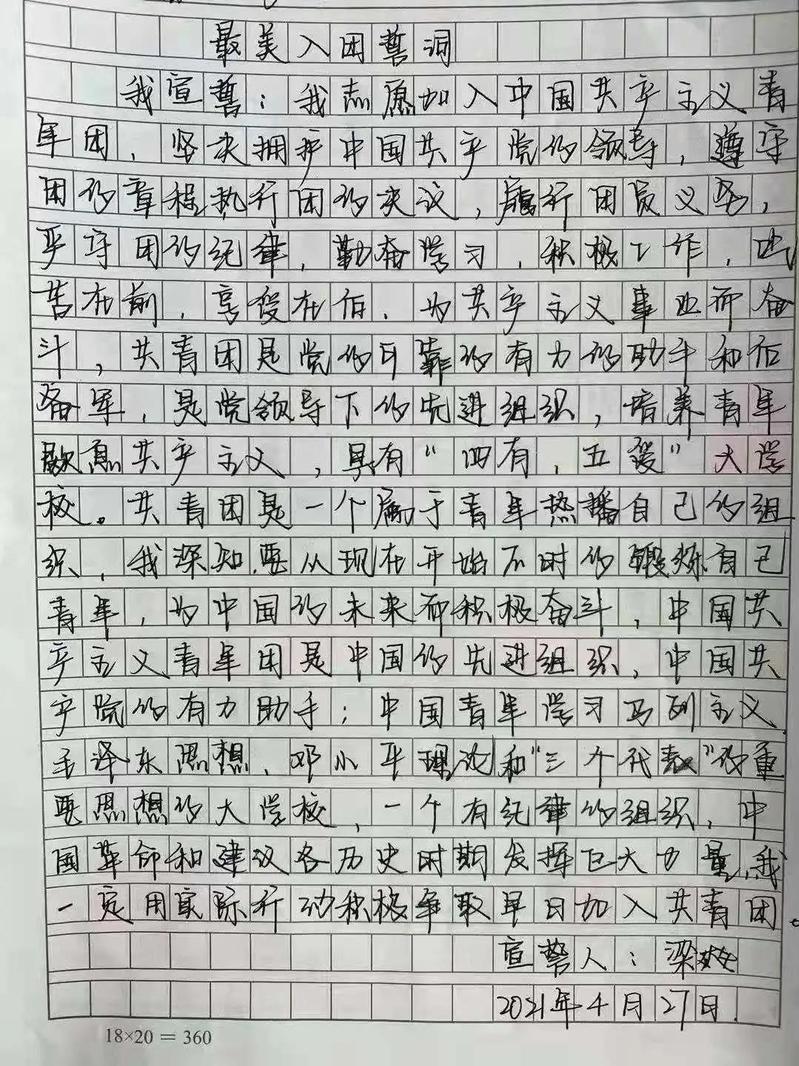 最美入团誓词
我宣誓：我志愿加入中国共产主义青
年团，坚决拥护中国共产党的领导，遵守
团的章程执行团的决议，履行团员义务，
严守团的纪律，勤奋学习，积极工作，吃
苦在前，享受在后，为共产主义事业而奋
斗，共青团是党的可靠的有力的助手和后
备军，是党领导下的先进组织，培养青年
共产主义，具有“四有，五爱”大学
校。共青团是一个属于青年热播自己的组
织，我深知要从现在开始不时的锻炼自己
青年，为中国的未来而积极奋斗，中国共
产主义青年团是中国的先进组织，中国共
产院的有力助手；中国青年学习马列主义
毛泽东思想、邓小平理论和“三个代表”的重
要思想的大学校，一个有纪律的组织，中
国革命和建议各历史时期发挥巨大力量，我
一定用实际行动积极争取早日加入共青团。
宣誓人：梁
2021年4月27日.
18×20＝360